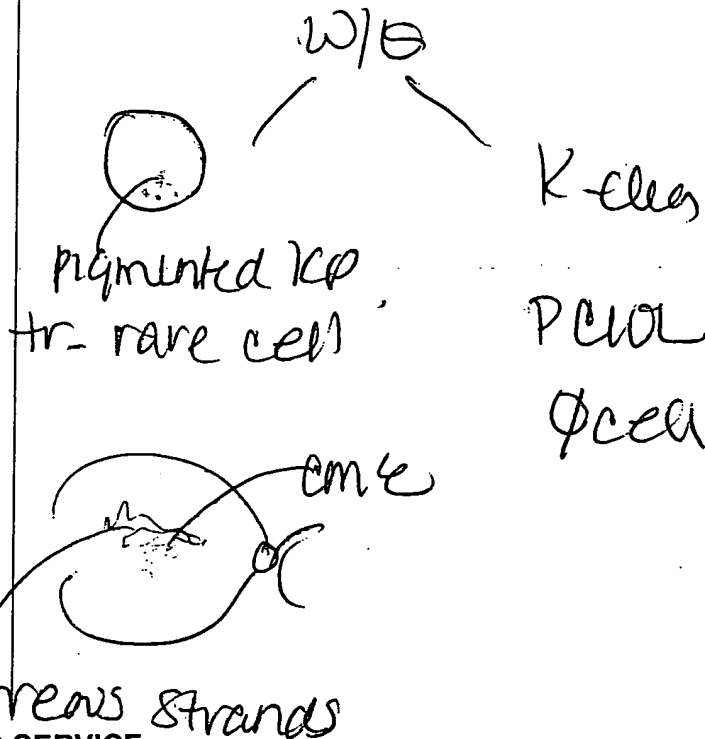 W/
K-clear
pigmented KP
tr- rare cell
PCIOL
φ cell
CME
reous strands
SERVICE